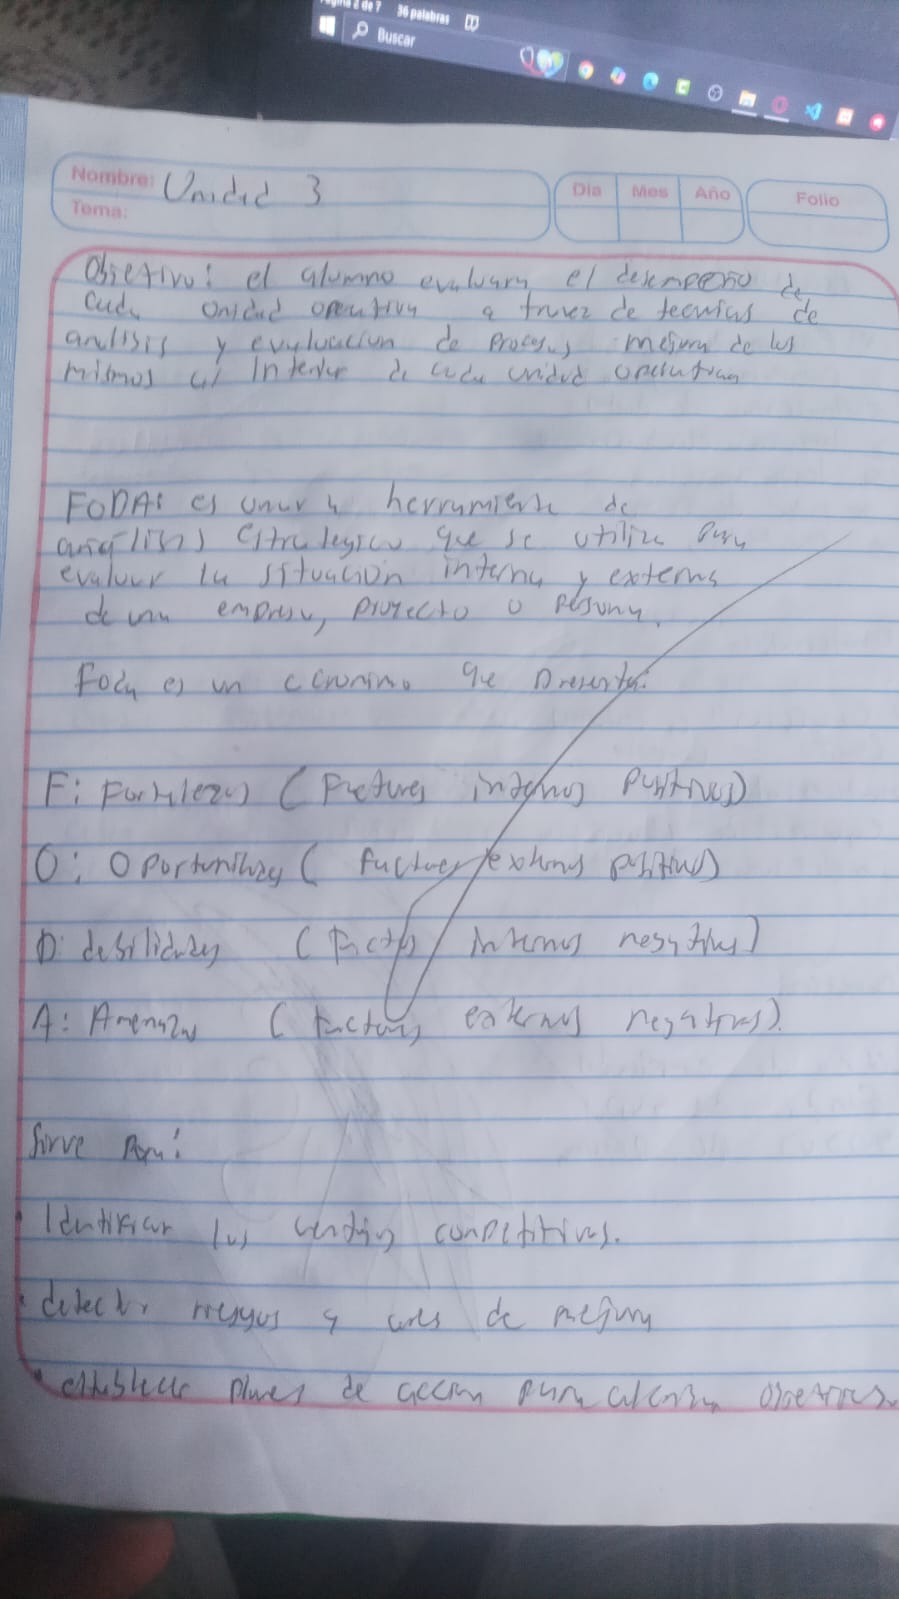 Página 2 de 7 36 palabras
Buscar
Nombre: Unidad 3
Día Mes Año Folio
Tema:
Objetivo: el alumno evaluara el desempeño de
cada unidad operativa a travez de tecnicas de
analisis y evaluacion de procesos mejora de los
mismos al interior de cada unidad operativa
FODA: es una herramienta de
analisis estrategico que se utiliza para
evaluar la situación interna y externa
de una empresa, proyecto o persona.
Foda es un acronimo que presenta:
F: Fortalezas (Factores internos positivos)
O: Oportunidades (factores externos positivos)
D: debilidades (Factores internos negativos)
A: Amenazas (Factores externos negativos).
Sirve para:
• Identificar las ventajas competitivas.
• detectar riesgos y areas de mejora
• establecer planes de accion para alcanzar objetivos.